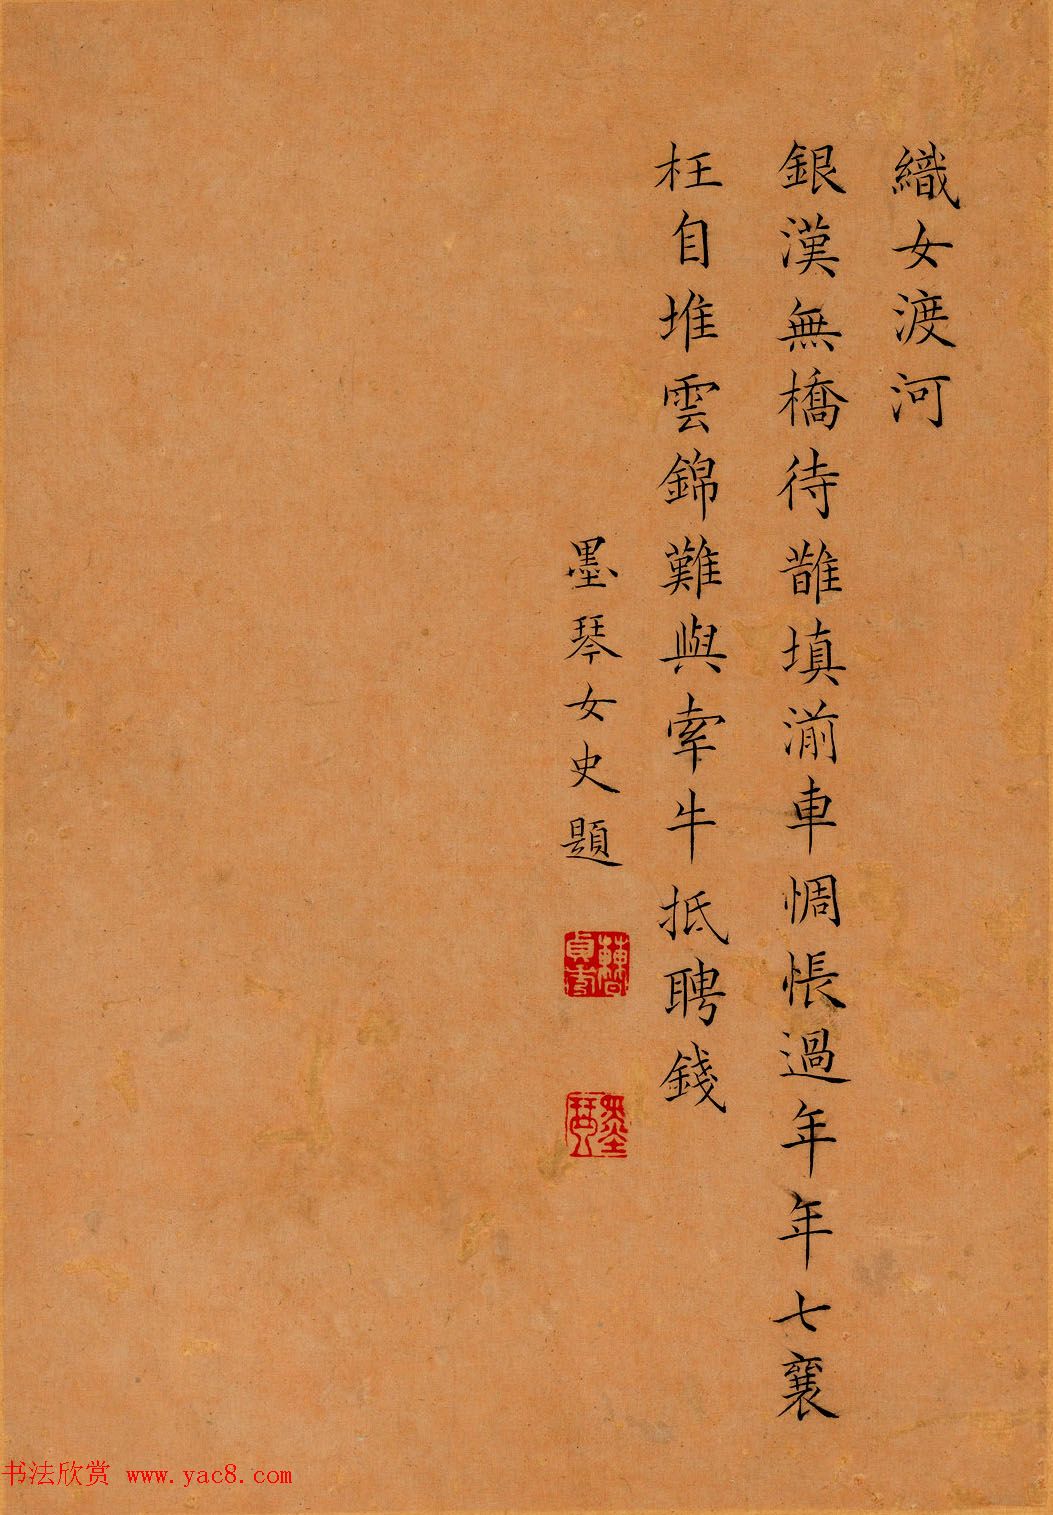 織女渡河
銀漢無橋待鵲填湔車惆悵過年年七襄
枉自堆雲錦難與牽牛抵聘錢
墨琴女史題
墨琴
书法欣赏 www.yac8.com